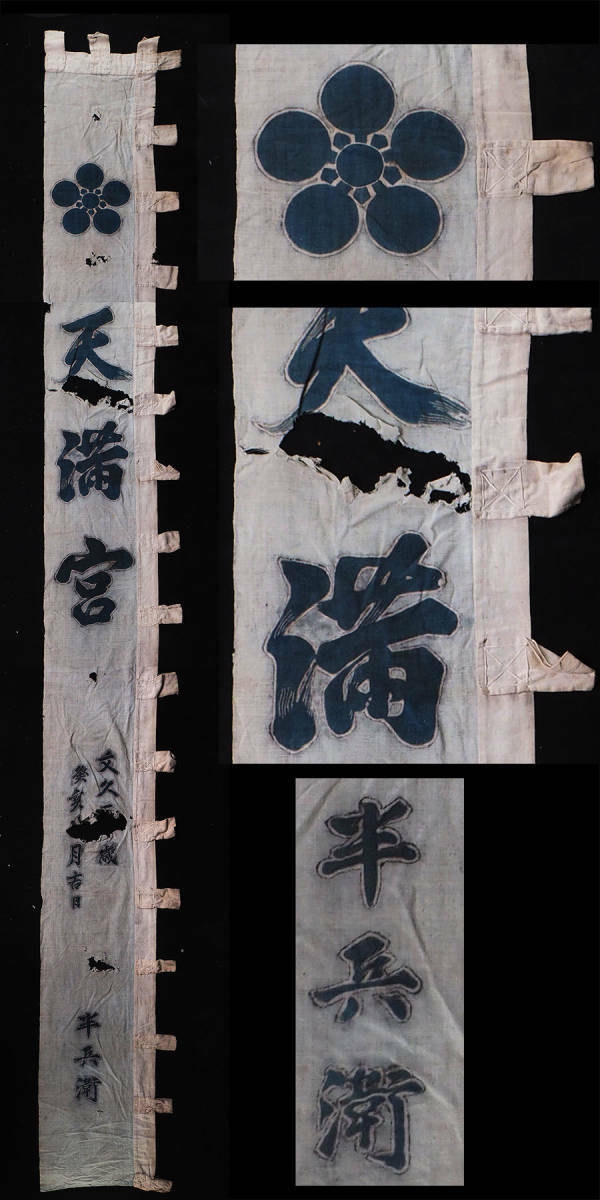 天満宮
文久 歳
癸亥 月吉日
半兵衛
天満
半兵衛